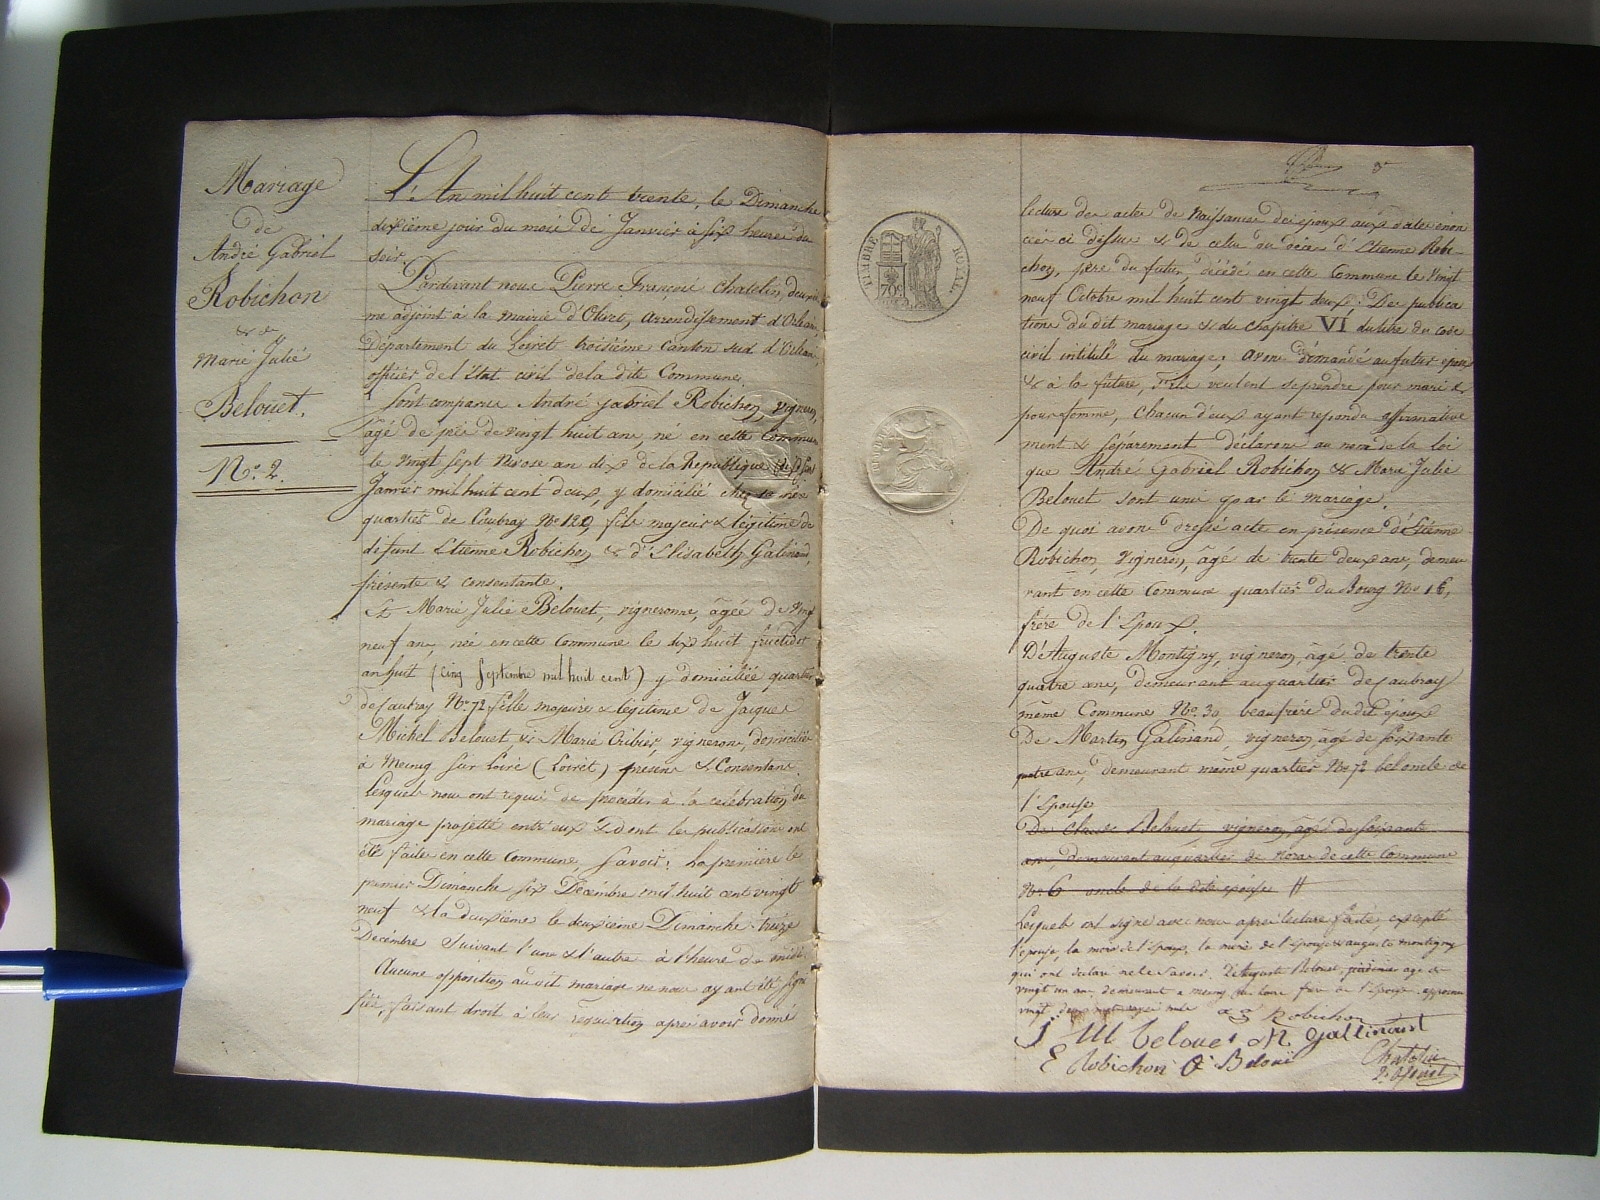 Mariage
de
André Gabriel
Robichon
&
Marie Julie
Belouet.
No. 2.
L'An mil huit cent trente, le Dimanche
dixième jour du mois de Janvier à six heures du
soir.
Pardevant nous Pierre François Chatelin, deuxiè
me adjoint à la mairie d'Olivet, arrondissement d'Orléans
Département du Loiret troisième canton sud d'Orléans
officier de l'état civil de la dite Commune.
Sont comparus André Gabriel Robichon vigneron,
âgé de près de vingt huit ans, né en cette Commune
le vingt sept Nivose an dix de la Republique (dix sept
Janvier mil huit cent deux, y domicilié chez sa mère
quartier de Caubray No 129, fils majeur & légitime de
défunt Etienne Robichon & d'Elisabeth Galinand,
présente & consentante.
Et Marie Julie Belouet, vigneronne, âgée de vingt
neuf ans, née en cette Commune le dix huit fructidor
an huit (cinq Septembre mil huit cent) y domiciliée quartier
de Caubray No 72 fille majeure & légitime de Jacques
Michel Belouet & Marie Cribier, vignerons, domiciliés
à Meung sur Loire (Loiret) présens & Consentans.
Lesquels nous ont requis de procéder à la célébration du
mariage projetté entr'eux & dont les publications ont
été faites en cette Commune, Savoir: La première le
premier Dimanche six Décembre mil huit cent vingt
neuf & la deuxième le deuxième Dimanche treize
Decembre Suivant l'une & l'autre à l'heure de midi.
Aucune opposition audit mariage ne nous ayant été signi
fiée, faisant droit à leur réquisition après avoir donné
8e
TIMBRE ROYAL
70c
lecture des actes de Naissance des epoux aux dates énon
cées ci dessus & de celui du décès d'Etienne Robi-
chon, père du futur, décédé en cette Commune le vingt
neuf Octobre mil huit cent vingt deux: Des publica
tions du dit mariage & du chapitre VI du titre du code
civil intitulé du mariage; avons demandé au futur epoux
& à la future, s'ils veulent se prendre pour mari &
pour femme, chacun d'eux ayant répondu affirmative
ment & séparement déclarons au nom de la loi
que André Gabriel Robichon & Marie Julie
Belouet sont unis par le mariage.
De quoi avons dressé acte en présence d'Etienne
Robichon, vigneron, âgé de trente deux ans, demeu
rant en cette Commune quartier du Bourg No 16,
frère de l'Epoux.
D'Auguste Montigny, vigneron, agé de trente
quatre ans, demeurant au quartier de Caubray
même Commune No. 30 beaufrère du dit époux
De Martin Galinand, vigneron, âgé de soixante
quatre ans, demeurant même quartier No 72 bel oncle de
l'Epouse
De Claude Belouet, vigneron, âgé de soixante
ans demeurant au quartier de de cette Commune
No 6 oncle de la dite epouse //
Lesquels ont signé avec nous après lecture faite, excepté
l'epouse, la mère de l'Epoux, la mère de l'épouse & auguste montigny
qui ont declaré ne le savoir. D'Auguste Belouet, agé de
vingt un ans, demeurant a meung sur loire frère de l'Epouse approuvé
vingt deux mots rayés nuls a g Robichon
J M Belouet M. Gallinand
E Robichon A Beloué
Chatelin